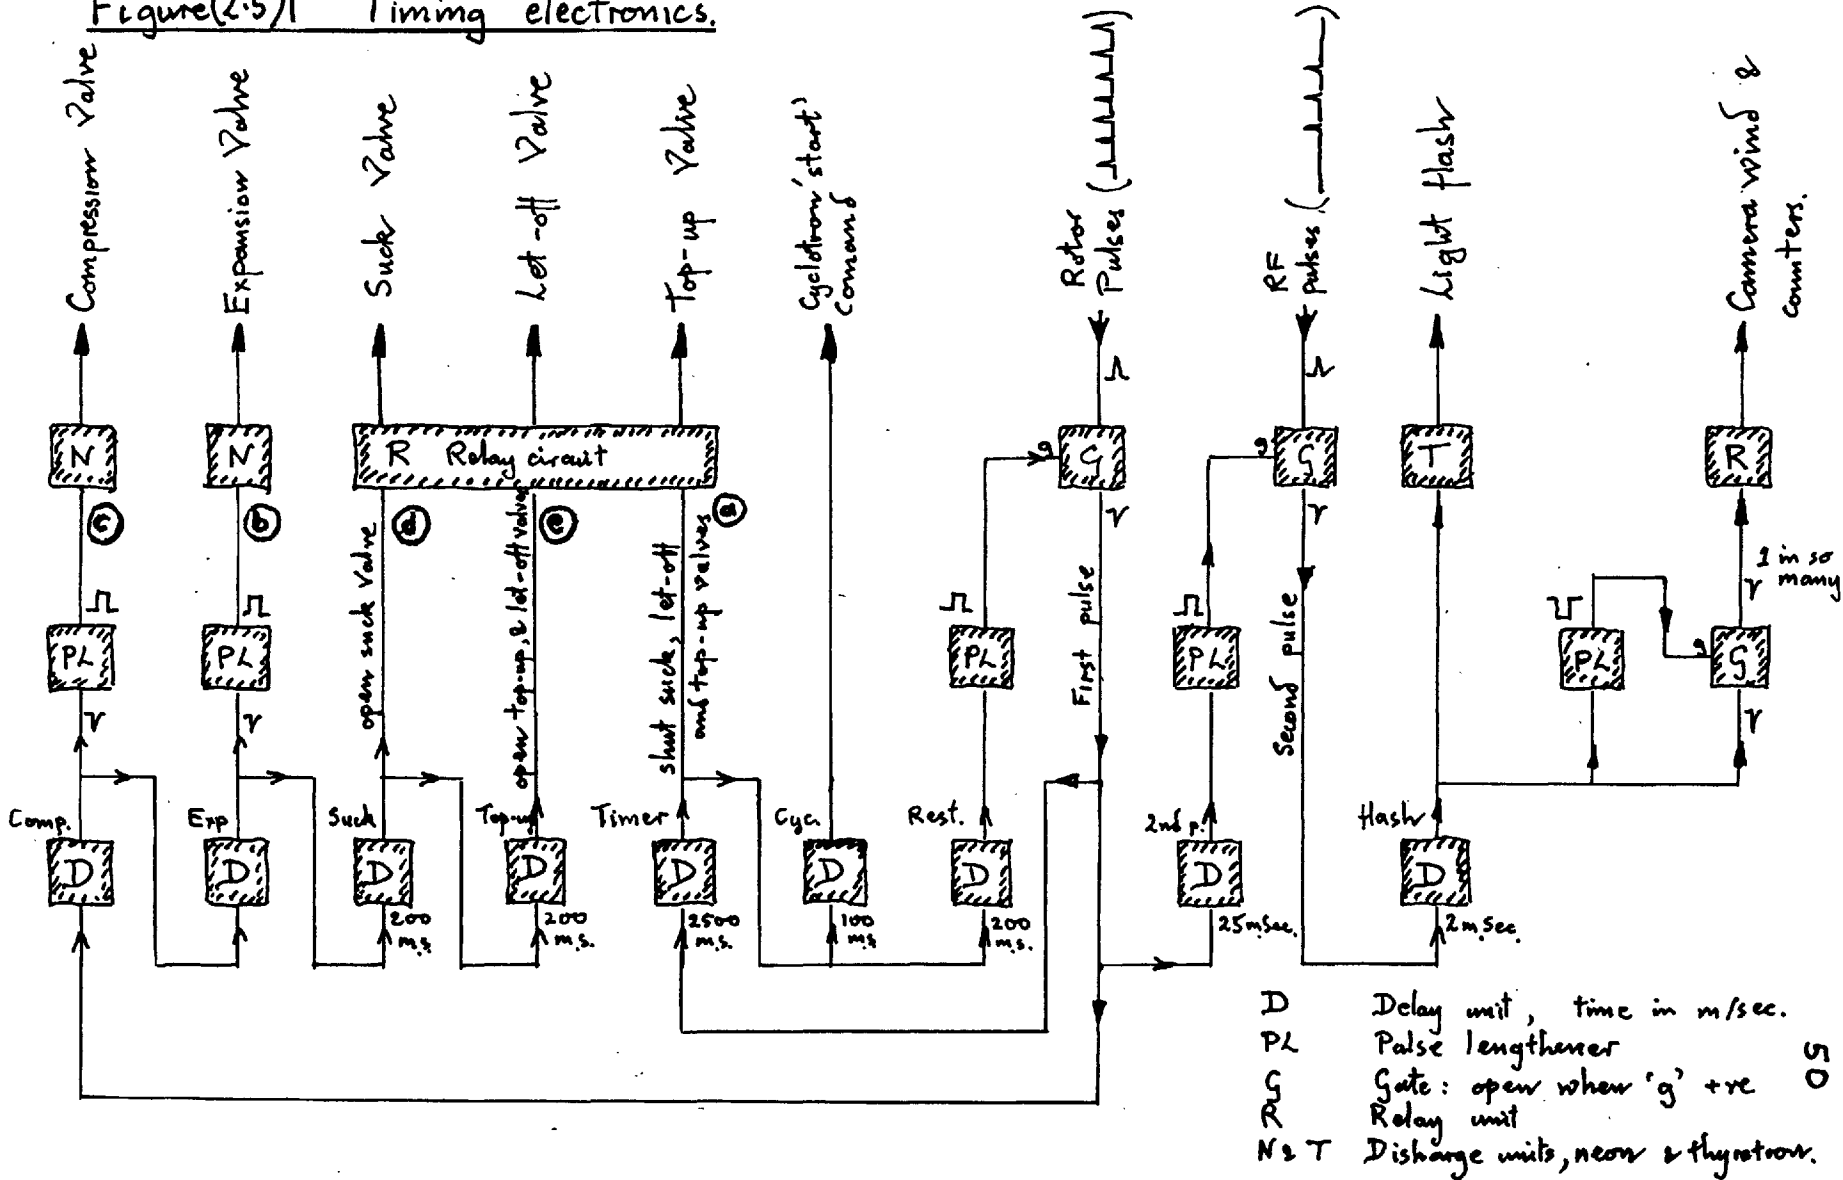 Figure(2.5)1 Timing electronics.
Compression Valve
Expansion Valve
Suck Valve
Let-off Valve
Top-up Valve
Cyclotron 'start'
Comand
Rotor
Pulses ( )
RF
pulses ( )
Light flash
Camera wind &
counters.
N
N
R Relay circuit
G
g
G
g
T
R
c
b
d
e
a
open suck valve
open top-up, & let-off valves
shut suck, let-off
and top-up valves
First pulse
Second pulse
1 in so
many
PL
PL
PL
PL
PL
G
g
Comp.
Exp
Suck
Top-up
Timer
Cyc.
Rest.
2nd p.
flash
D
D
D
D
D
D
D
D
D
200
m.s.
200
m.s.
2500
m.s.
100
m.s
200
m.s.
25mSec.
2m.Sec.
D Delay unit, time in m/sec.
PL Pulse lengthener
G Gate: open when 'g' +ve
R Relay unit
N & T Disharge units, neon & thyratron.
50